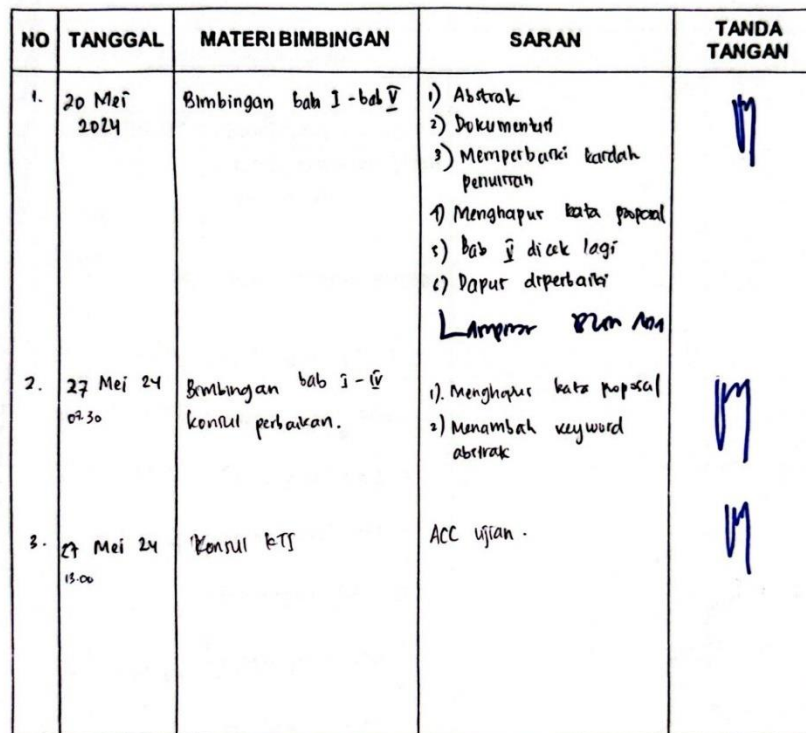 NO TANGGAL MATERI BIMBINGAN SARAN TANDA TANGAN
1. 20 Mei 2024
Bimbingan bab I - bab V
1) Abstrak
2) Dokumentasi
3) Memperbaiki kaidah
penulisan
4) Menghapus kata proposal
5) Bab V dicek lagi
6) Dapus diperbaiki
Lampiran
2. 27 Mei 24
07.30
Bimbingan bab I - IV
konsul perbaikan.
1). Menghapus kata proposal
2) Menambah keyword
abstrak
3. 27 Mei 24
13.00
Konsul KTI
ACC ujian.